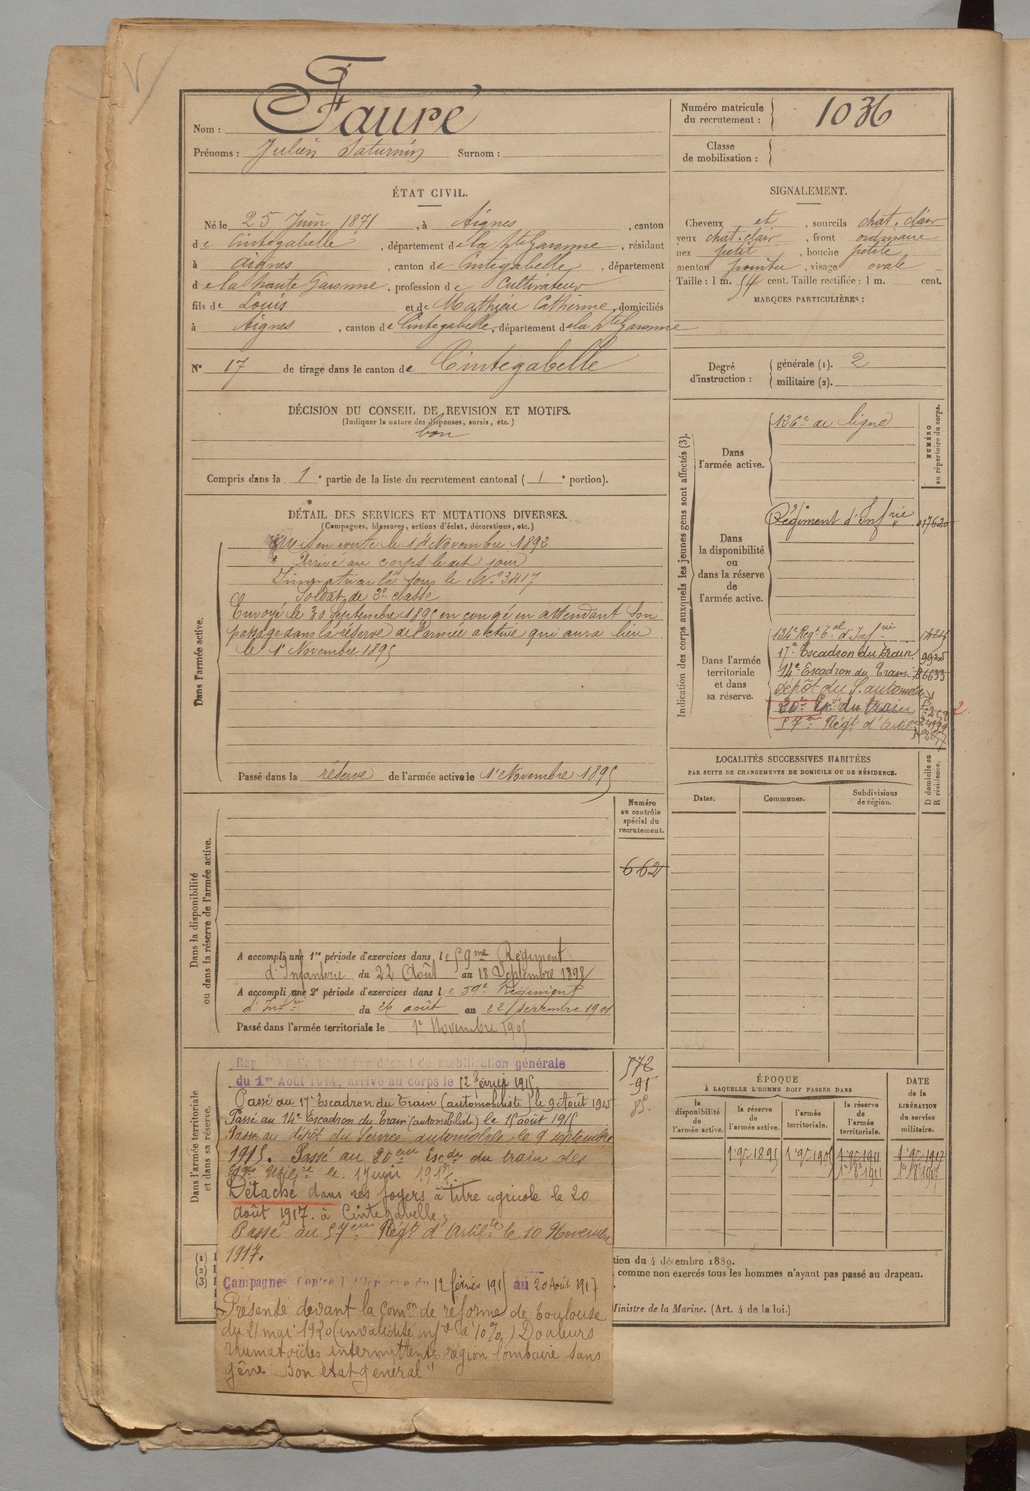 Nom : Fauré
Prénoms : Julien Saturnin Surnom :
Numéro matricule du recrutement : 1036
Classe de mobilisation :
ÉTAT CIVIL.
Né le 25 Juin 1871, à Aignes, canton
de Cintegabelle, département de la Hte Garonne, résidant
à Aignes, canton de Cintegabelle, département
de la haute Garonne, profession de Cultivateur
fils de Louis et de Matthieu Catherine, domiciliés
à Aignes, canton de Cintegabelle, département de la Hte Garonne
N° 17 de tirage dans le canton de Cintegabelle
SIGNALEMENT.
Cheveux et, sourcils chat. clair
yeux chat. clair, front ordinaire
nez petit, bouche petite
menton pointu, visage ovale
Taille : 1 m. 54 cent. Taille rectifiée : 1 m. cent.
MARQUES PARTICULIÈRES :
Degré d'instruction : générale (1). 2
militaire (2).
DÉCISION DU CONSEIL DE REVISION ET MOTIFS.
(Indiquer la nature des dispenses, sursis, etc.)
bon
Compris dans la 1e partie de la liste du recrutement cantonal (1e portion).
DÉTAIL DES SERVICES ET MUTATIONS DIVERSES.
(Campagnes, blessures, actions d'éclat, décorations, etc.)
Dans l'armée active.
Mis en route le 1er Novembre 1892
Arrivé au corps le dit jour
Immatriculé sous le N° 3417
Soldat de 2e classe
Envoyé le 30 Septembre 1895 en congé en attendant son
passage dans la réserve de l'armée active qui aura lieu
le 1er Novembre 1895
Passé dans la réserve de l'armée active le 1er Novembre 1895
Indication des corps auxquels les jeunes gens sont affectés (3).
NUMÉRO au répertoire du corps.
Dans l'armée active.
126e de ligne
Dans la disponibilité ou dans la réserve de l'armée active.
Régiment d'Infrie
Dans l'armée territoriale et dans sa réserve.
134e Regt Tal d'Infrie
17e Escadron du Train
14e Escadron du Train
dépôt du S. automobile
20e Ex. du train
57e Régt d'Artie
2
LOCALITÉS SUCCESSIVES HABITÉES
PAR SUITE DE CHANGEMENTS DE DOMICILE OU DE RÉSIDENCE.
Dates. Communes. Subdivisions de région. D domicile ou R résidence.
Dans la disponibilité ou dans la réserve de l'armée active.
Numéro au contrôle spécial du recrutement.
662
A accompli une 1re période d'exercices dans le 59me Régiment
d'Infanterie du 22 Août au 18 Septembre 1898
A accompli une 2e période d'exercices dans le 59e Régiment
d'Infrie du 26 août au 22 septembre 1901
Passé dans l'armée territoriale le 1er Novembre 1905
Dans l'armée territoriale et dans sa réserve.
572
95
décret de mobilisation générale
du 1er Août 1914, arrivé au corps le 12 février 1915.
Passé au 17e Escadron du Train (automobiliste) le 9 Août 1915
Passé au 14e Escadron du Train (automobiliste) le 15 août 1915
Passé au dépôt du Service automobile le 9 septembre
1915. Passé au 20eme Escdon du train des
le 1 juin
Détaché dans ses foyers à titre agricole le 20
août 1917. à Cintegabelle.
Passé au 57eme Régt d'Artilie le 10 Novembre
1917.
Campagnes Contre l'Allemagne du 12 février 1915 au 20 Août 1917
Présenté devant la Comon de réforme de Toulouse
du 21 mai 1920 (invalidité infre à 10%) Douleurs
rhumatoïdes intermittente région lombaire sans
gêne bon état général"
ÉPOQUE
À LAQUELLE L'HOMME DOIT PASSER DANS
la disponibilité de l'armée active. la réserve de l'armée active. l'armée territoriale. la réserve de l'armée territoriale.
DATE de la LIBÉRATION du service militaire.
1er 9bre 1895 1er 9bre 1905 1er 9bre 1911 1er 9bre 1917
(1)
(2)
(3)
tion du 4 décembre 1889.
comme non exercés tous les hommes n'ayant pas passé au drapeau.
Ministre de la Marine. (Art. 4 de la loi.)